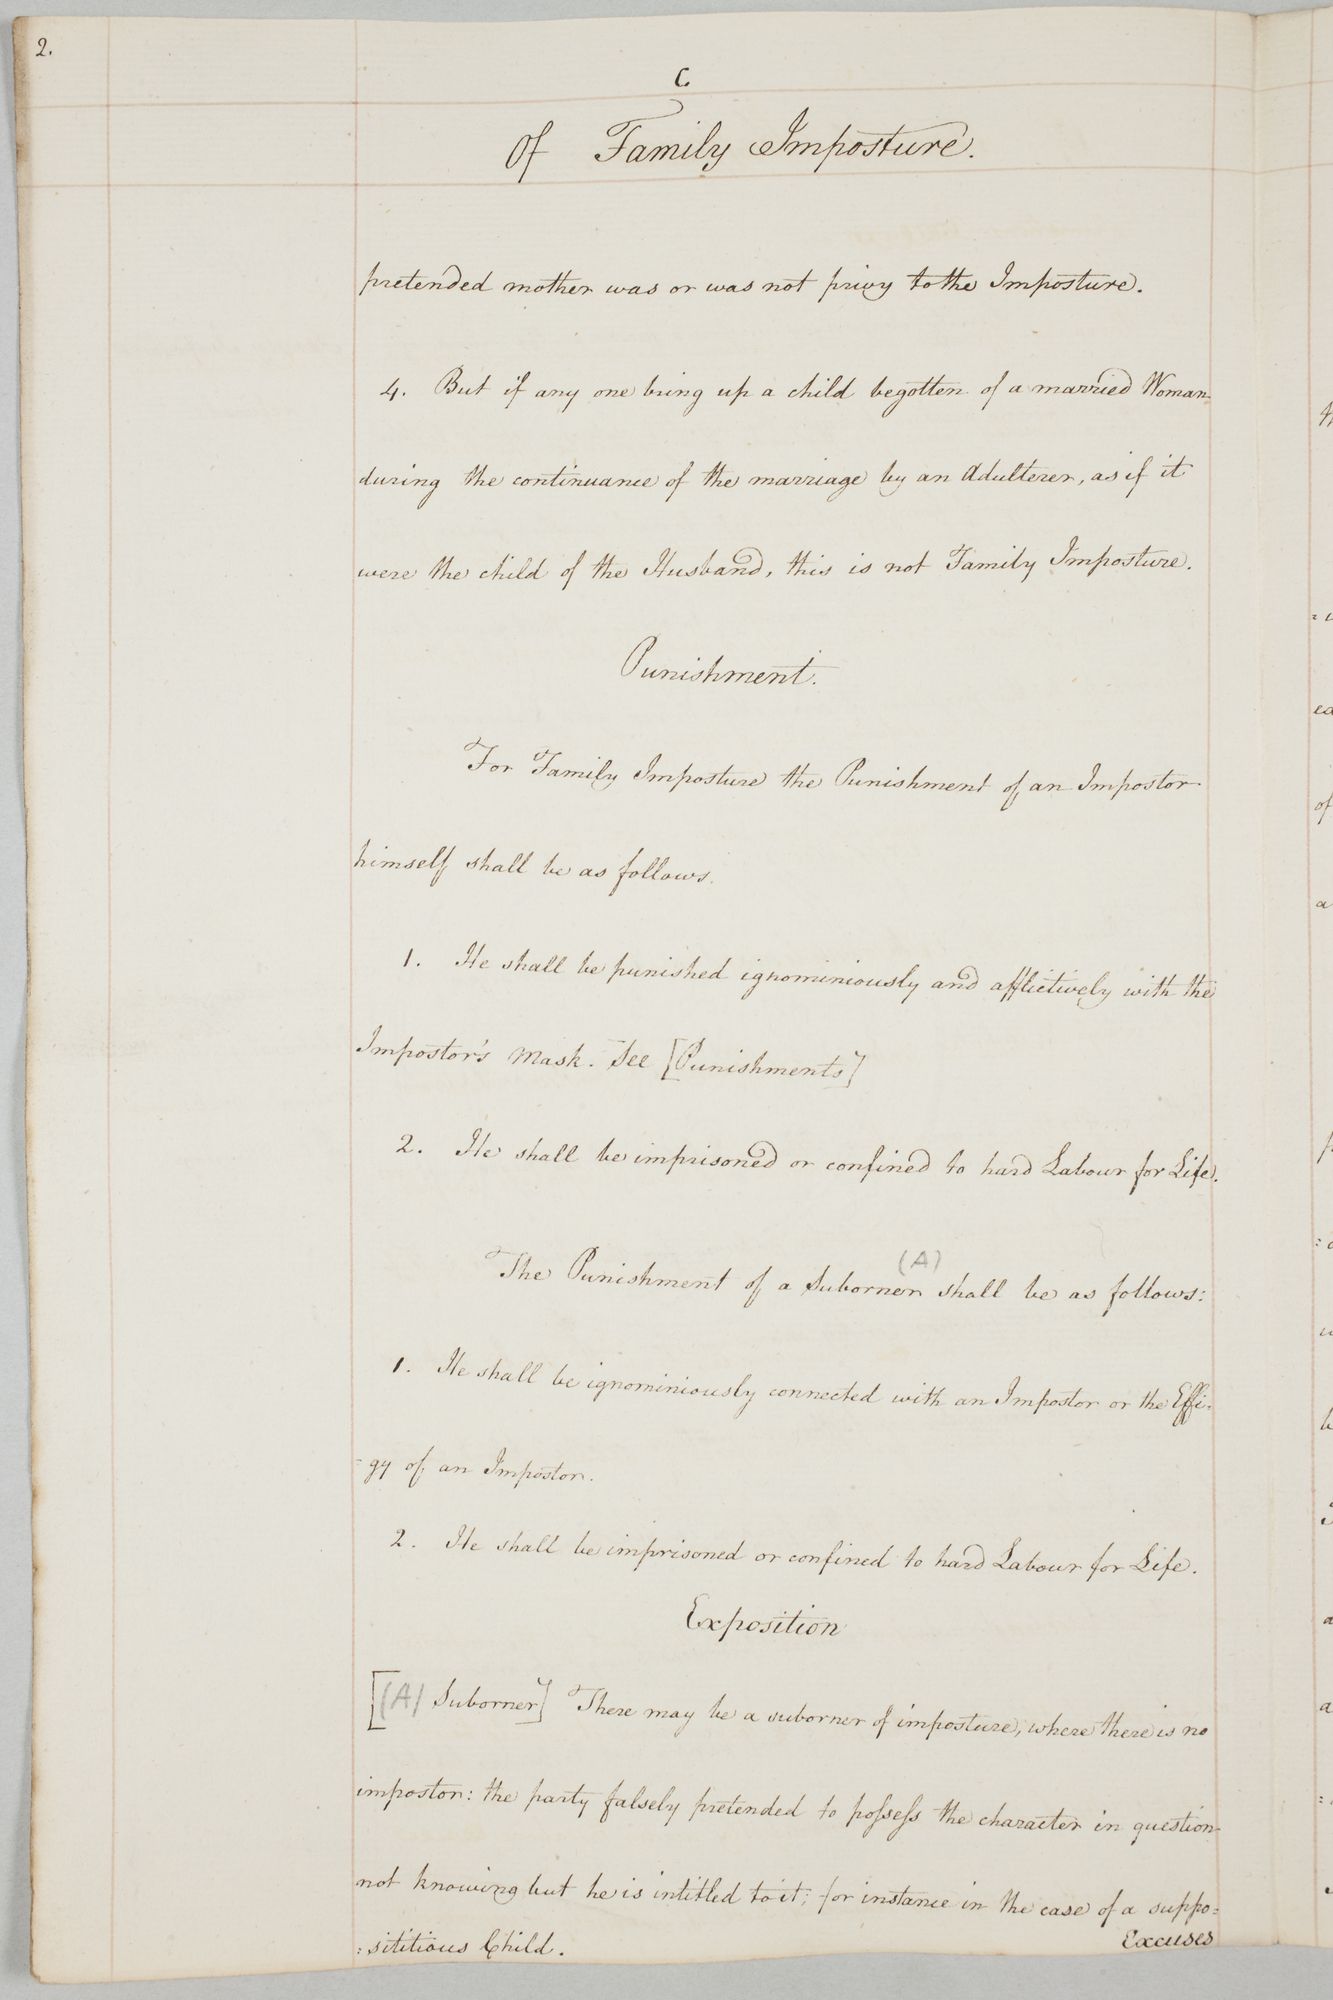 2.
C
Of Family Imposture.
pretended mother was or was not privy to the Imposture.
4. But if any one bring up a child begotten of a married Woman
during the continuance of the marriage by an Adulterer, as if it
were the child of the Husband, this is not Family Imposture.
Punishment.
For Family Imposture the Punishment of an Impostor
himself shall be as follows.
1. He shall be punished ignominiously and afflictively with the
Impostor's Mask. See [Punishments]
2. He shall be imprisoned or confined to hard Labour for Life.
(A)
The Punishment of a Suborner shall be as follows:
1. He shall be ignominiously connected with an Impostor or the Effi=
=gy of an Impostor.
2. He shall be imprisoned or confined to hard Labour for Life.
Exposition
[(A) Suborner] There may be a suborner of imposture, where there is no
impostor: the party falsely pretended to possess the character in question
not knowing but he is intitled to it; for instance in the case of a suppo=
=sititious Child.
Excuses